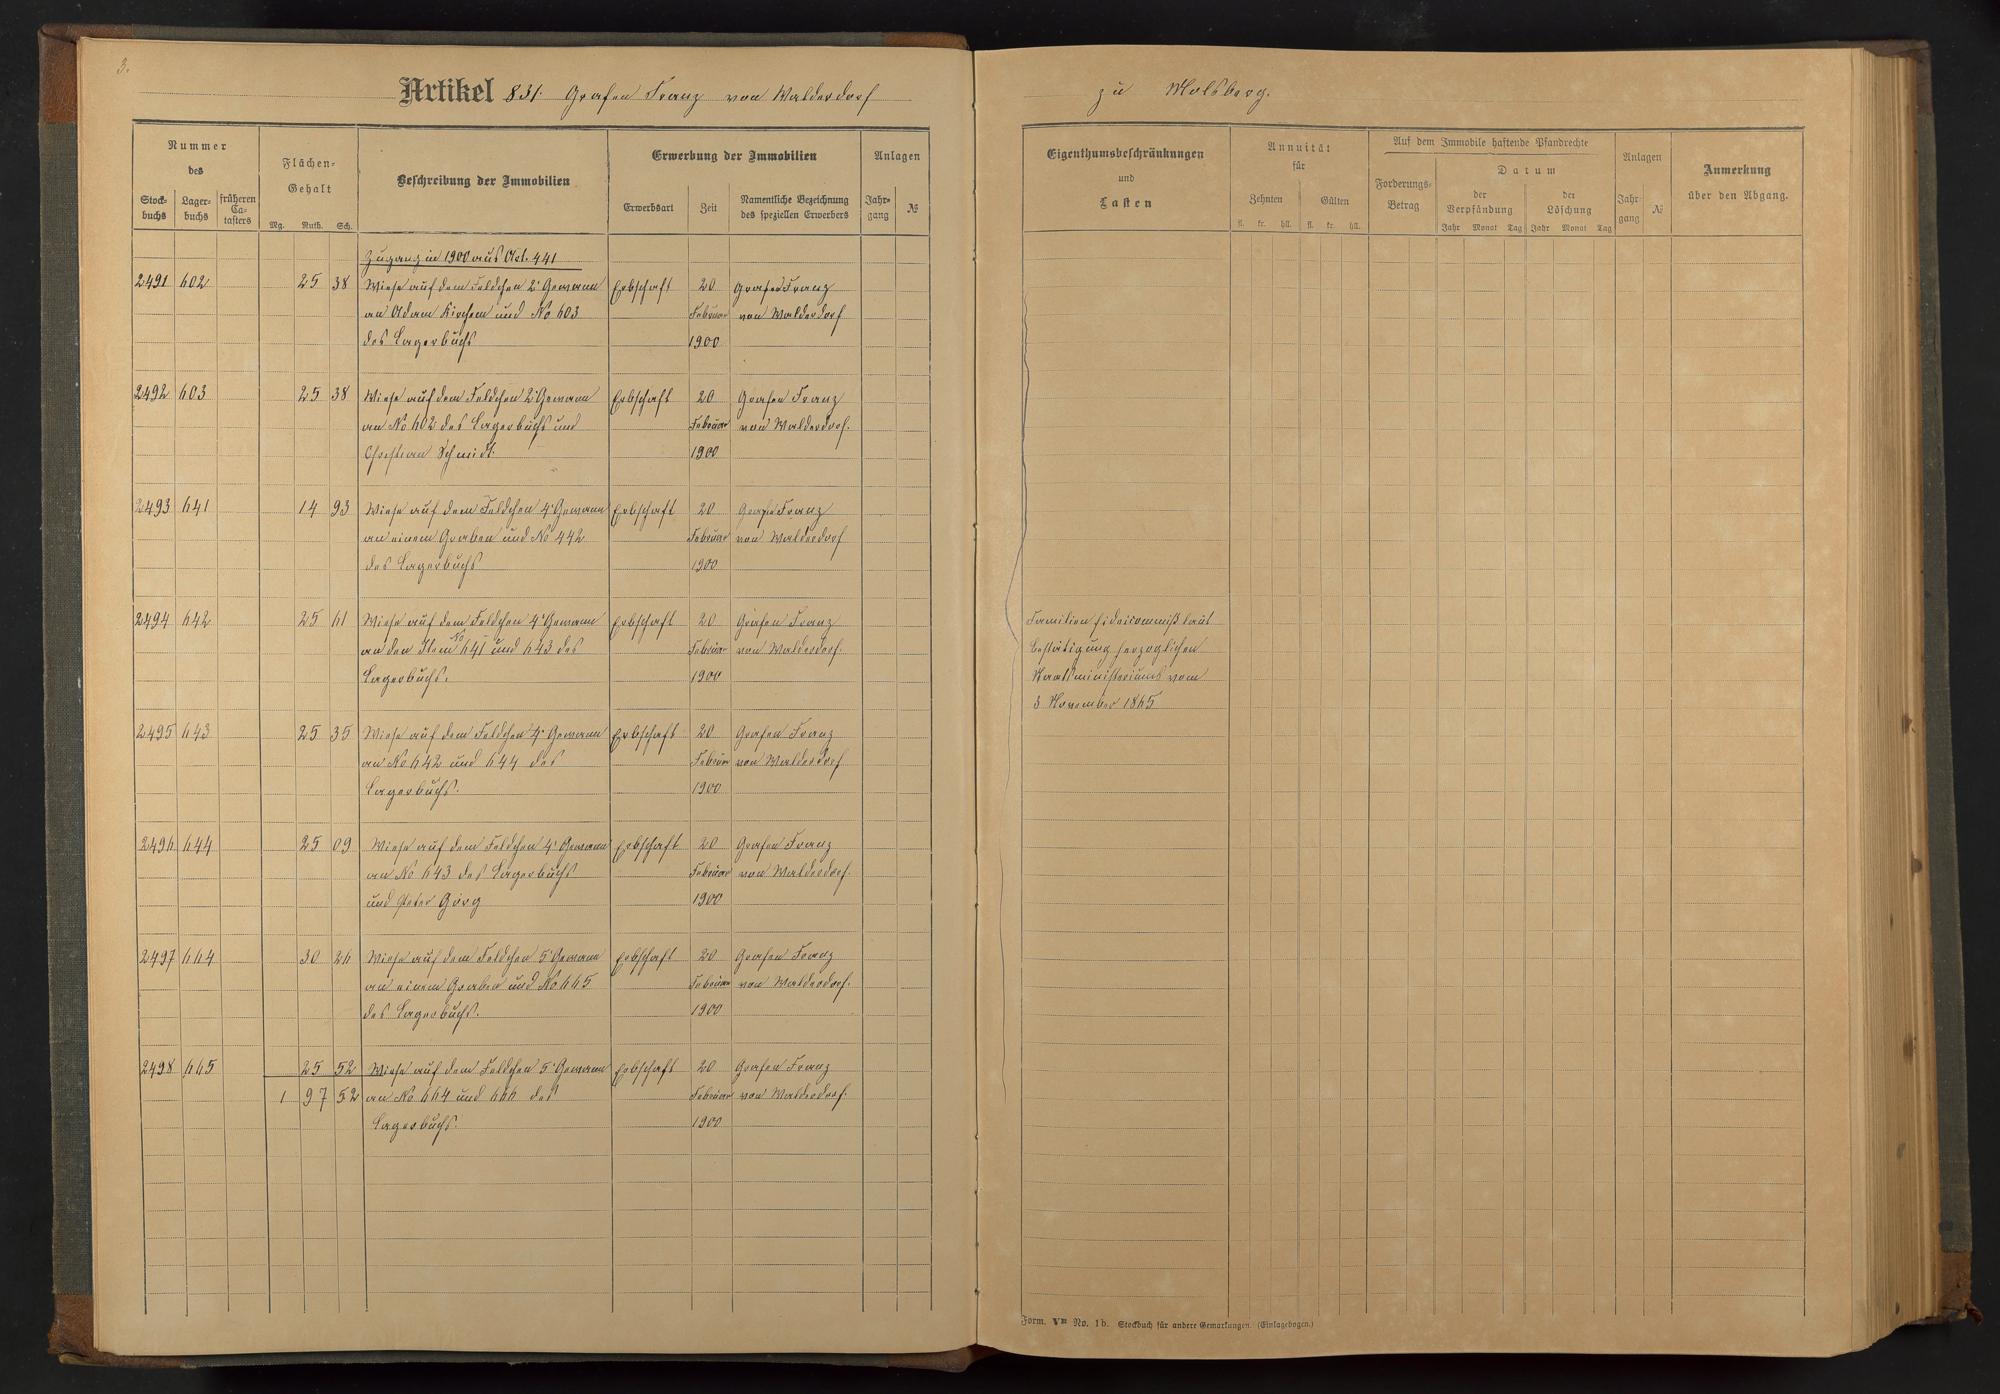 3.
Artikel 831. Grafen Franz von Walderdorf
Nummer
des
Stock-
buchs
Lager-
buchs
früheren
Ca-
tasters
Flächen-
Gehalt
Mg. Ruth. Sch.
Beschreibung der Immobilien
Erwerbung der Immobilien
Erwerbsart
Zeit
Namentliche Bezeichnung
des speziellen Erwerbers
Anlagen
Jahr-
gang
№
Zugang in 1900 aus Art. 441
2491 602 25 38 Wiese auf dem Feldchen 2' Gewann Erbschaft 20 Grafen Franz
an Adam Kirchem und No 603 Februar von Walderdorf
des Lagerbuchs 1900
2492 603 25 38 Wiese auf dem Feldchen 2' Gewann Erbschaft 20 Grafen Franz
an No 602 des Lagerbuchs und Februar von Walderdorf.
Christian Schmidt. 1900
2493 641 14 93 Wiese auf dem Feldchen 4' Gewann Erbschaft 20 Grafen Franz
an einem Graben und No 442 Februar von Walderdorf
des Lagerbuchs 1900
2494 642 25 61 Wiese auf dem Feldchen 4' Gewann Erbschaft 20 Grafen Franz
an den Item No 641 und 643 des Februar von Walderdorf.
Lagerbuchs. 1900
2495 643 25 35 Wiese auf dem Feldchen 4' Gewann Erbschaft 20 Grafen Franz
an No 642 und 644 des Februar von Walderdorf
Lagerbuchs. 1900
2496 644 25 09 Wiese auf dem Feldchen 4' Gewann Erbschaft 20 Grafen Franz
an No 643 des Lagerbuchs Februar von Walderdorf.
und Peter Görg 1900
2497 664 30 26 Wiese auf dem Feldchen 5' Gewann Erbschaft 20 Grafen Franz
an einem Graben und No 665 Februar von Walderdorf.
des Lagerbuchs. 1900
2498 665 25 52 Wiese auf dem Feldchen 5' Gewann Erbschaft 20 Grafen Franz
1 97 52 an No 664 und 666 des Februar von Walderdorf.
Lagerbuchs. 1900
zu Molsberg.
Eigenthumsbeschränkungen
und
Lasten
Annuität
für
Zehnten
Gülten
fl. kr. hll. fl. kr. hll.
Auf dem Immobile haftende Pfandrechte
Forderungs-
Betrag
Datum
der
Verpfändung
der
Löschung
Jahr Monat Tag Jahr Monat Tag
Anlagen
Jahr-
gang
№
Anmerkung
über den Abgang.
Familien fideicommiß laut
Bestätigung herzoglichen
Staatsministeriums vom
3 November 1865
Form. VIII No. 1b. Stockbuch für andere Gemarkungen. (Einlagebogen.)